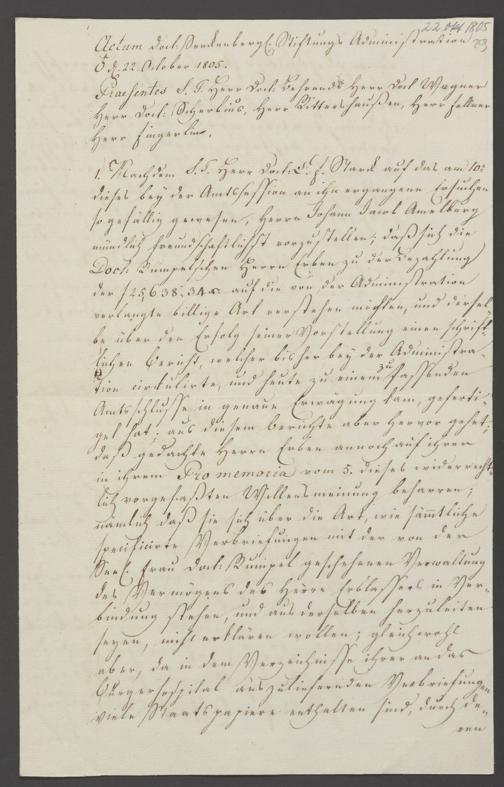 22 Oct 1805
Actum Doct: Senckenbergl. Stiftungs Administration
d. 22. October 1805.
Praesentes S. T. Herr Doct: Behrends Herr Doct Wagner
Herr Doct: Scherbius, Herr Rittershaußen, Herr Fellner
Herr Fingerlin.
1. Nachdem S. T. Herr Doct: Starck auf das am 10:
dieses bey der Amtssession an ihn ergangene Ersuchen
so gefällig gewesen, Herrn Johann Jacob Amelburg
mündlich freundschaftlichst vorzustellen, daß sich die
Doct: Rumpelschen Herrn Erben zu der Bezahlung
der f 25638. 34 auf die von der Administration
verlangte billige Art verstehen möchten, und dersel
be über den Erfolg seiner Vorstellung einen schrift
lichen Bericht, welcher bisher bey der Administra-
tion cirkulirte, und heute zu einem zu fassenden
Amtsschlusse in genaue Erwägung kam, geferti-
get hat; aus diesem Berichte aber hervor gehet,
daß gedachte Herrn Erben annoch auf ihrer
in ihrem Pro memoria vom 5. dieses widerrecht
lich vorgefaßten Willensmeinung beharren;
nämlich daß sie sich über die Art, wie sämmtliche
specificirte Verbriefungen mit der von der
Seel. Frau Doct: Rumpel geschehenen Verwaltung
des Vermögens des Herrn Erblassers in Ver-
bindung stehen, und aus derselben herzuleiten
seyen, nicht erklären wollen; gleichwohl
aber, da in dem Verzeichnisse ihrer an das
Bürgerhospital auszuliefernden Verbriefungen
viele Staatspapiere enthalten sind, durch de-
ren